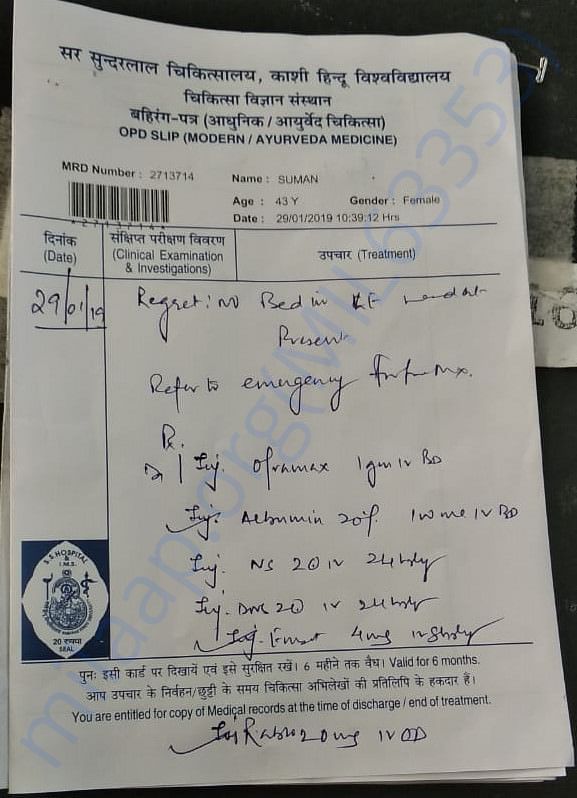 सर सुन्दरलाल चिकित्सालय, काशी हिन्दू विश्वविद्यालय
चिकित्सा विज्ञान संस्थान
बहिरंग-पत्र (आधुनिक / आयुर्वेद चिकित्सा)
OPD SLIP (MODERN / AYURVEDA MEDICINE)
MRD Number : 2713714
Name : SUMAN
Age : 43 Y Gender : Female
Date : 29/01/2019 10:39:12 Hrs
दिनांक
(Date)
संक्षिप्त परीक्षण विवरण
(Clinical Examination
& Investigations)
उपचार (Treatment)
29/01/19
Regret: no Bed in
Present
Refer to emergency
Rx.
Inj. Oframax 1gm IV BD
Inj. Albumin 20% IV BD
Inj. NS 20 IV 24 hrly
Inj. DNS 20 IV 24 hrly
Inj. Emset 4mg IV 8 hrly
S.S HOSPITAL
&
I.M.S.
20 रुपया
SEAL
पुनः इसी कार्ड पर दिखायें एवं इसे सुरक्षित रखें। 6 महीने तक वैध। Valid for 6 months.
आप उपचार के निर्वहन/छुट्टी के समय चिकित्सा अभिलेखों की प्रतिलिपि के हकदार हैं।
You are entitled for copy of Medical records at the time of discharge / end of treatment.
Inj Rabso 20mg IV OD
milaap.org(MIL63353)